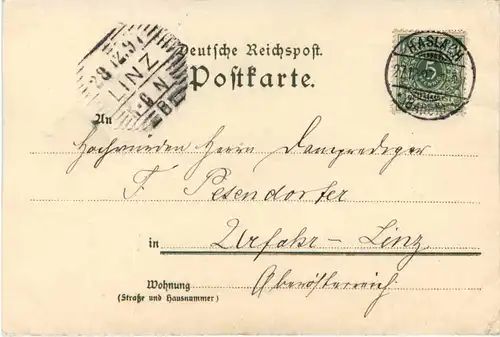 Deutsche Reichspost.
Postkarte.
28.12.97
LINZ
HASLACH
5
An
Hochwürden Herrn Domprediger
F. Pesendorfer
in Urfahr-Linz.
Wohnung Oberösterreich.
(Straße und Hausnummer)